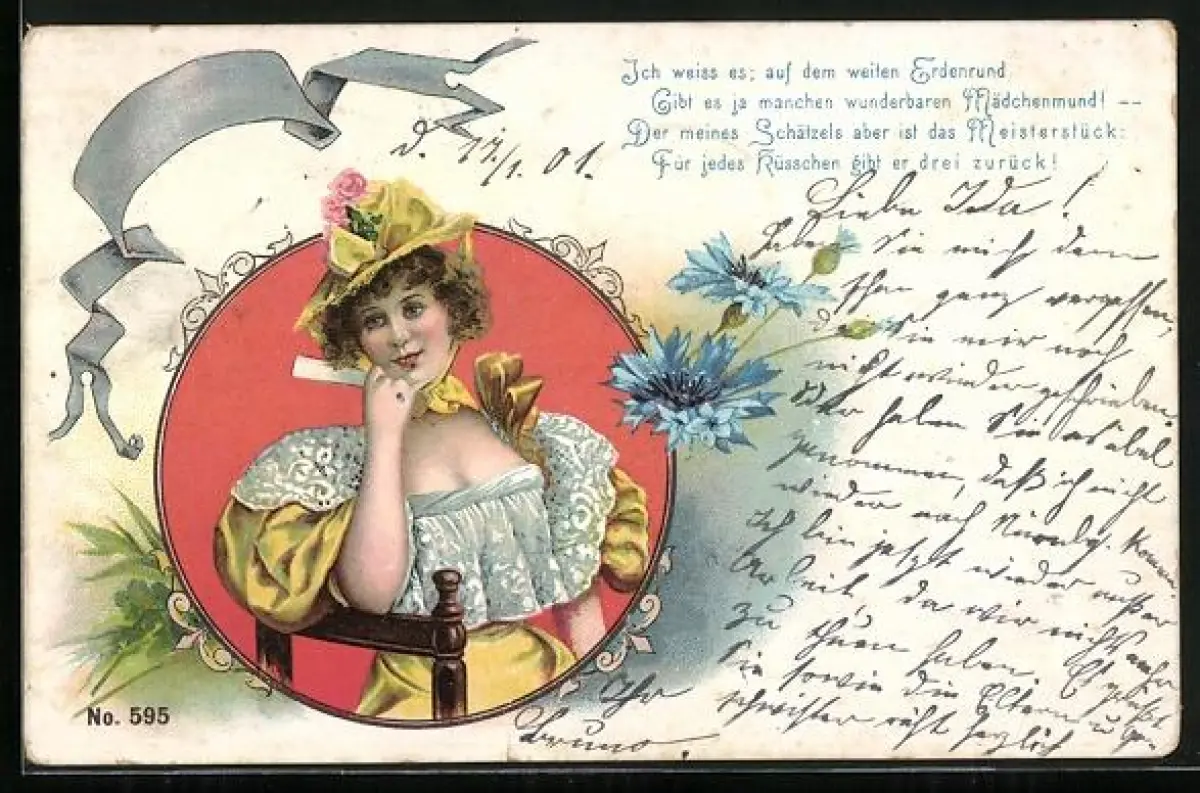 Ich weiss es; auf dem weiten Erdenrund
Gibt es ja manchen wunderbaren Mädchenmund! --
Der meines Schätzels aber ist das Meisterstück:
Für jedes Küsschen gibt er drei zurück!
d. 17/1. 01.
Liebe Ida!
Haben Sie mich denn
schon ganz vergessen,
da Sie mir noch
nicht wieder geschrieben.
Oder haben Sie es übel
genommen, daß ich nicht
wieder nach kommen
Ich bin jetzt wieder außer
Arbeit, da wir nichts mehr
zu thuen haben. Es grüßt
Sie sowie die Eltern u. Ge-
schwister recht herzlich
Ihr
Bruno.
No. 595